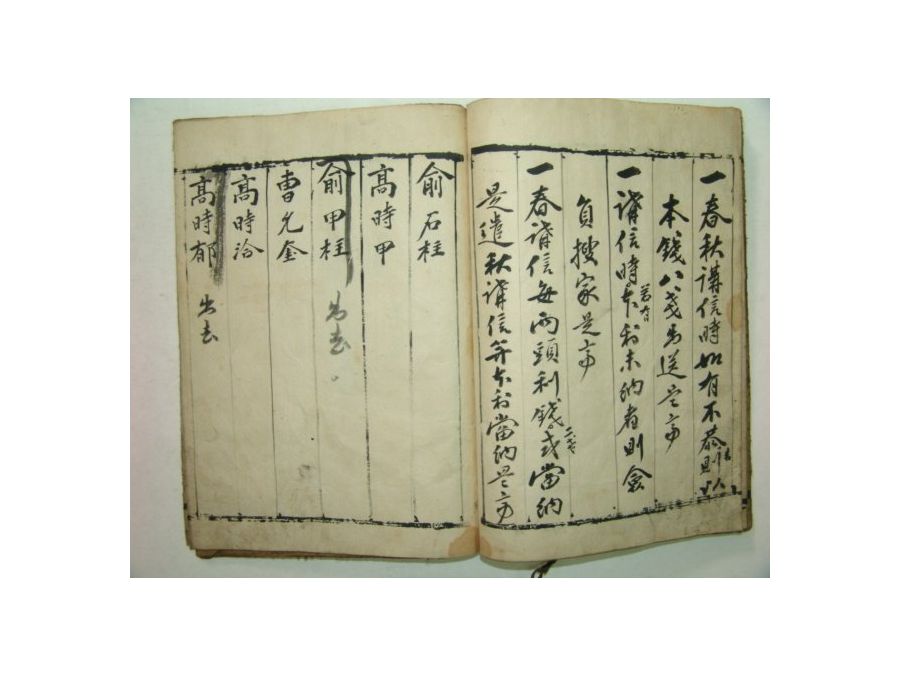 一春秋講信時如有不恭則以
本錢八戔出送之事
一講信時本利未納者則會
員搜家是齊
一春講信每兩頭利錢戔當納
是遣秋講信并本利當納是齊
俞石柱
高時甲
俞甲柱 出去
曺允金
高時洽
高時郁 出去